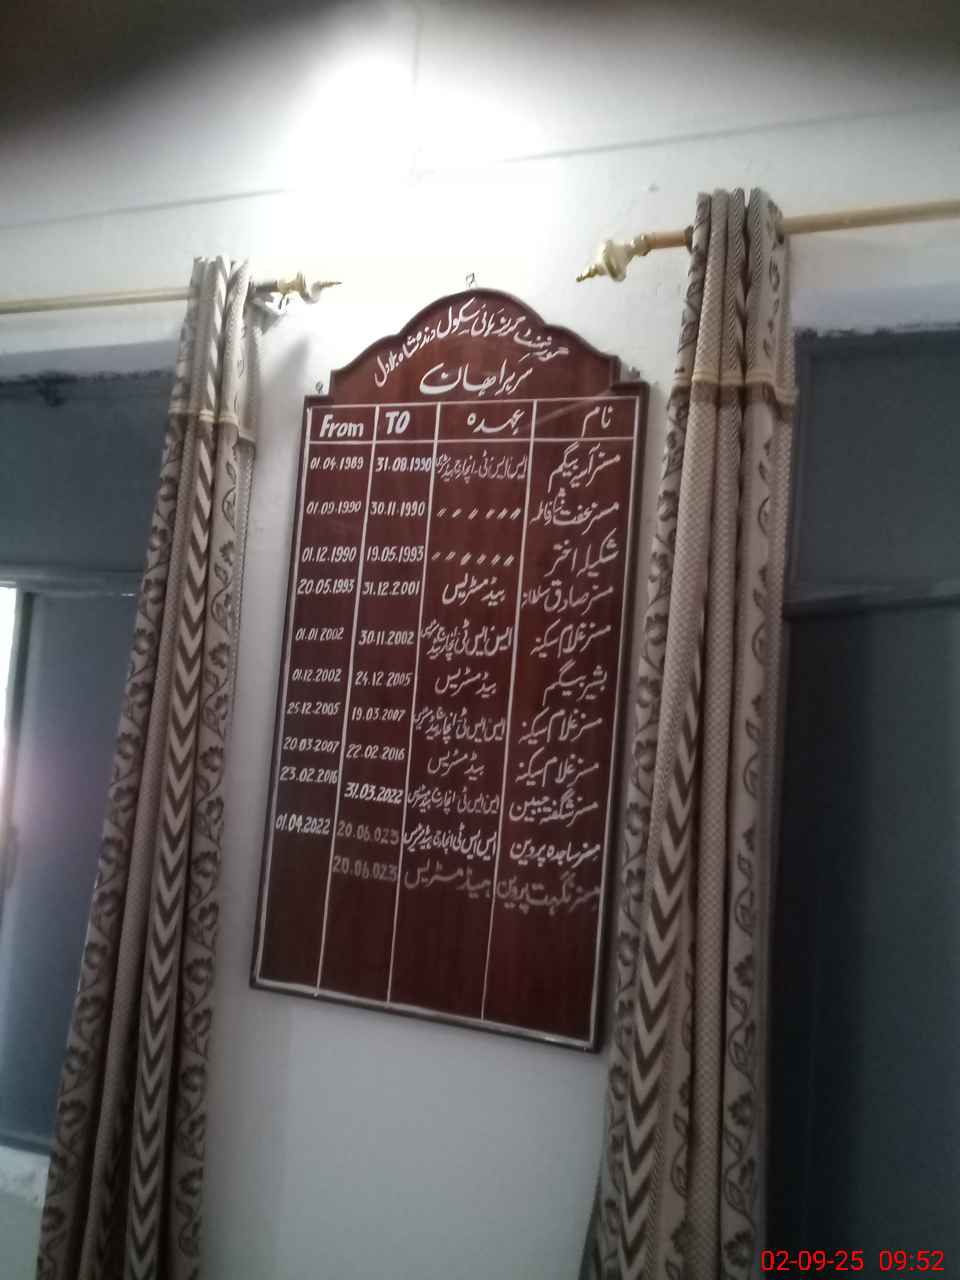 گورنمنٹ گرلز ہائی سکول دندہ شاہ بلاول
سربراہان
نام عہدہ TO From
مسز امیر بیگم ایس ایس ٹی۔انچارج ہیڈمسٹریس 31.08.1990 01.04.1989
مسز عفت فاطمہ 〃 〃 〃 〃 〃 〃 30.11.1990 01.09.1990
شکیلہ اختر 〃 〃 〃 〃 〃 〃 19.05.1993 01.12.1990
مسز صادق سلطانہ ہیڈمسٹریس 31.12.2001 20.05.1993
مسز غلام سکینہ ایس ایس ٹی۔انچارج ہیڈمسٹریس 30.11.2002 01.01.2002
بشیر بیگم ہیڈمسٹریس 24.12.2005 01.12.2002
مسز غلام سکینہ ایس ایس ٹی۔انچارج ہیڈمسٹریس 19.03.2007 25.12.2005
مسز غلام سکینہ ہیڈمسٹریس 22.02.2016 20.03.2007
مسز شگفتہ جبین ایس ایس ٹی۔انچارج ہیڈمسٹریس 31.03.2022 23.02.2016
مسز ساجدہ پروین ایس ایس ٹی انچارج ہیڈمسٹریس 20.06.023 01.04.2022
مسز نگہت پروین ہیڈمسٹریس 20.06.023
02-09-25 09:52